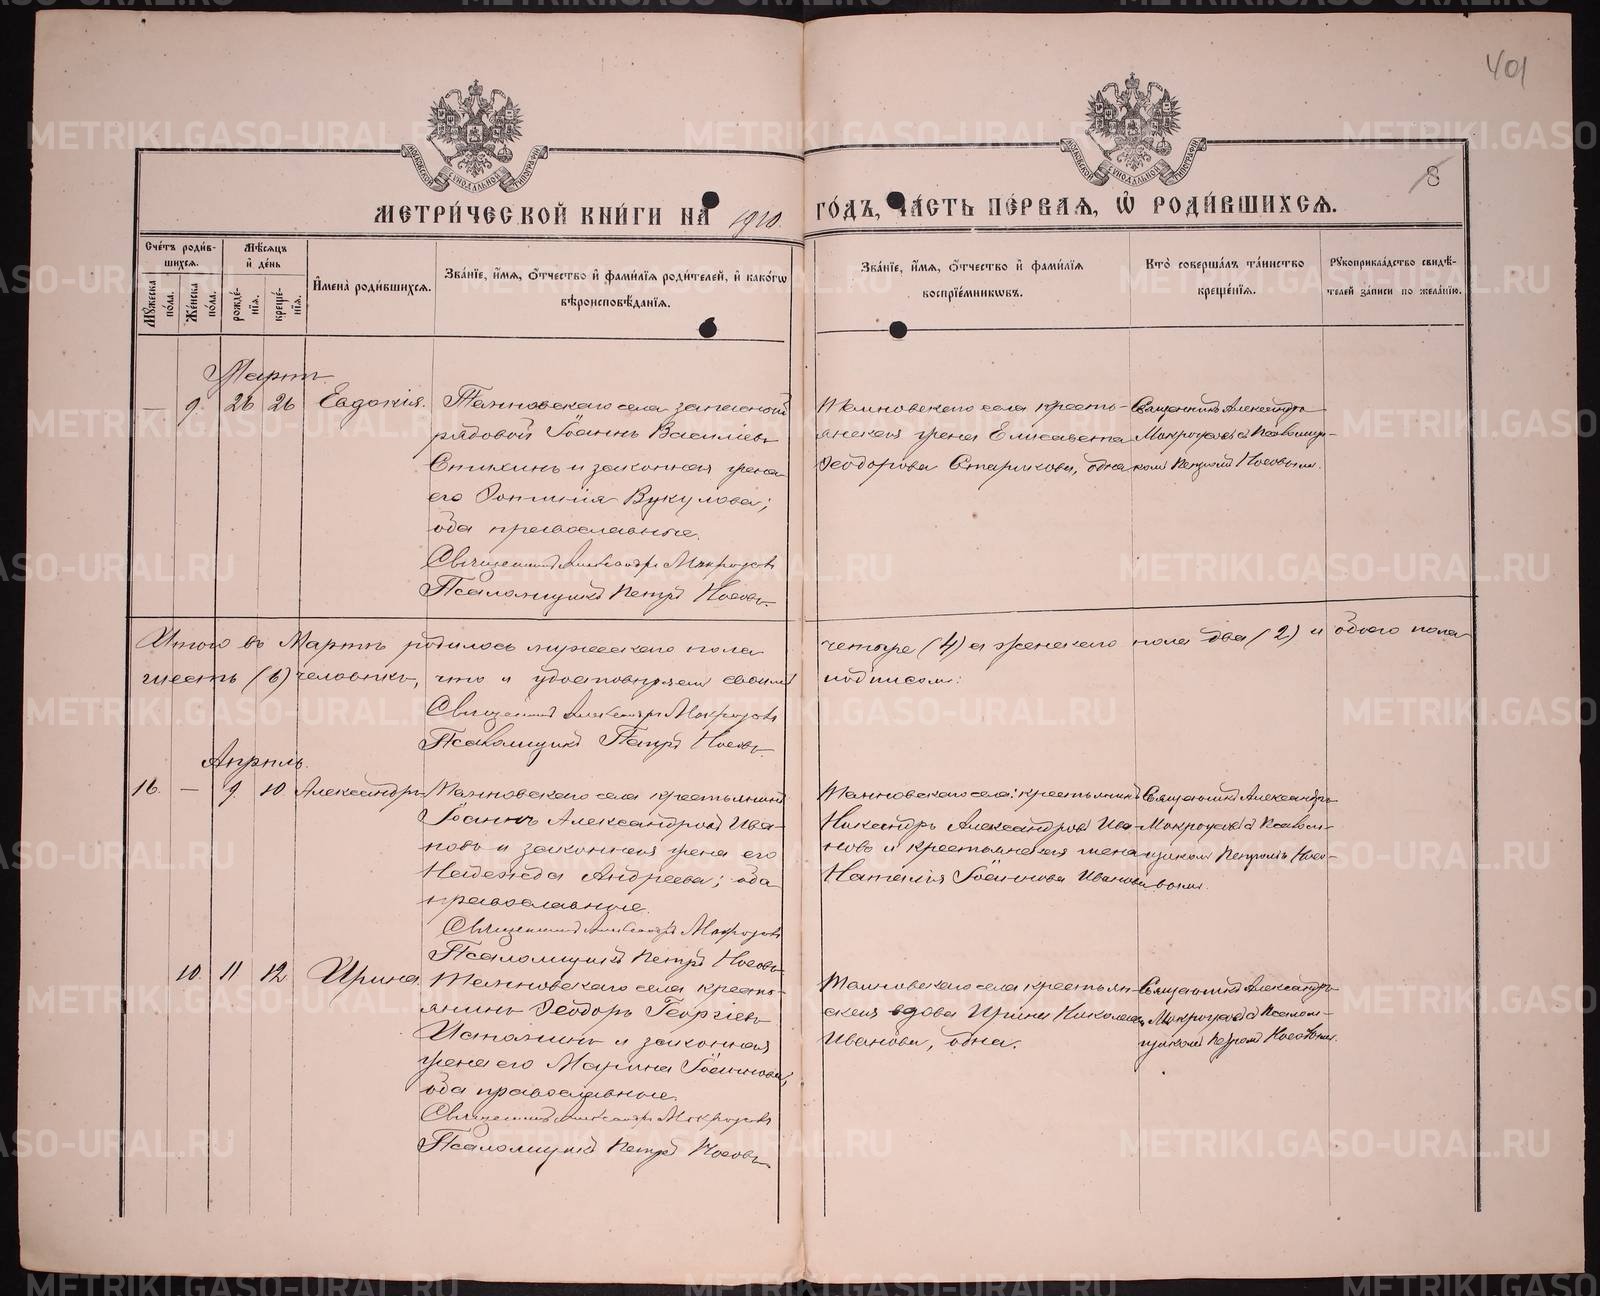 401
8
МЕТРИ́ЧЕСКОЙ КНИ́ГИ НА 1910 ГО́ДЪ, ЧА́СТЬ ПЕ́РВАЯ, Ѡ҆ РОДИ́ВШИХСЯ.
Сче́тъ роди́вшихся.
Мꙋ́жеска по́ла.
Же́нска по́ла.
Мѣ́сяцъ и҆ де́нь
рожде́нїя.
креще́нїя.
И҆мена̀ роди́вшихся.
Зва́нїе, и҆́мя, ѻ҆́тчество и҆ фами́лїя роди́телей, и҆ како́гѡ вѣроисповѣ́данїя.
Зва́нїе, и҆́мя, ѻ҆́тчество и҆ фами́лїя воспрїе́мникѡвъ.
Кто̀ соверша́лъ та́инство креще́нїя.
Рꙋкоприкла́дство свидѣ́телей за́писи по жела́нїю.
Мартъ
— 9. 26 26 Евдокія.
села запасной
рядовой Іоаннъ Василіевъ
и законная жена
его Вукулова;
оба православные.
Священникъ Александръ
Псаломщикъ Петръ Носовъ.
села кресть-
янская жена Елисавета
Ѳеодорова Старикова, одна
Священникъ Александръ
съ Псаломщи-
комъ Петромъ Носовымъ.
Итого въ Мартѣ родилось мужескаго пола четыре (4) и женскаго пола два (2) и обоего пола
шесть (6) человѣкъ, что и удостовѣряемъ своими подписями:
Священникъ Александръ
Псаломщикъ Петръ Носовъ.
Апрѣль.
16. — 9. 10. Александръ
села крестьянинъ
Іоаннъ Александровъ Ива-
новъ и законная жена его
Надежда Андреева; оба
православные.
Священникъ Александръ
Псаломщикъ Петръ Носовъ
села: крестьянинъ
Никандръ Александровъ Ива-
новъ и крестьянская жена
Наталія Іоаннова Иванова
Священникъ Александръ
съ Псалом-
щикомъ Петромъ Носо-
вымъ.
10. 11 12 Ирина.
села кресть-
янинъ Ѳеодоръ Георгіевъ
и законная
жена его Марина Іоаннова;
оба православные.
Священникъ Александръ
Псаломщикъ Петръ Носовъ
села крестьян-
ская вдова Ирина Николаева
Иванова, одна.
Священникъ Александръ
съ Псалом-
щикомъ Петромъ Носовымъ.
METRIKI.GASO-URAL.RU